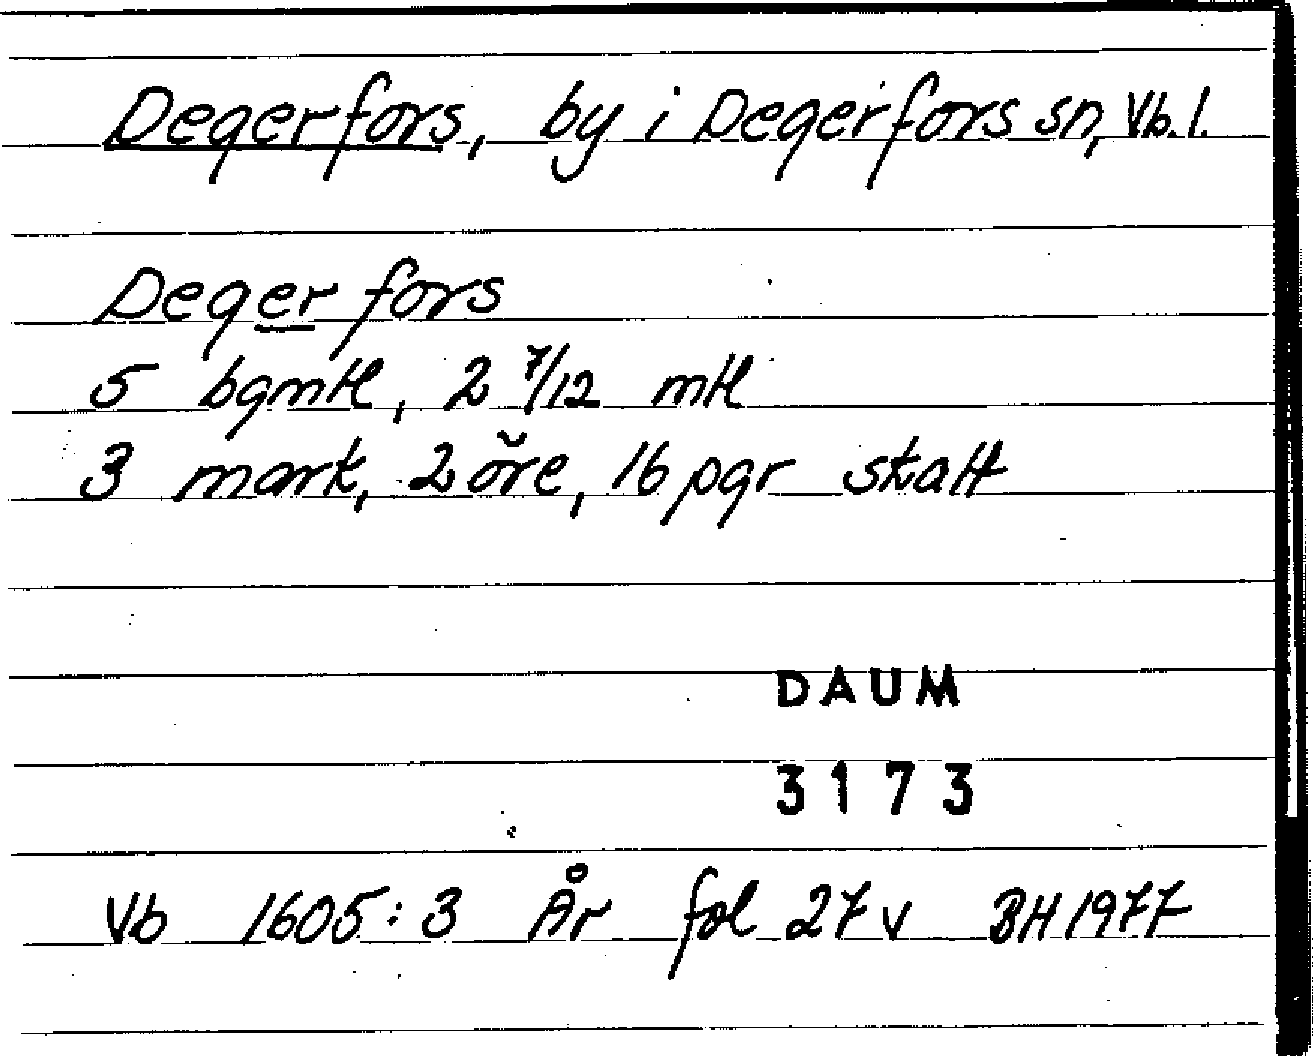 Degerfors, by i Degerfors sn, Vb. l.
Degerfors
5 bgmtl, 2 7/12 mtl
3 mark, 2 öre, 16 pgr skatt
DAUM
3173
Vb 1605:3 År fol 27 v BH 1977